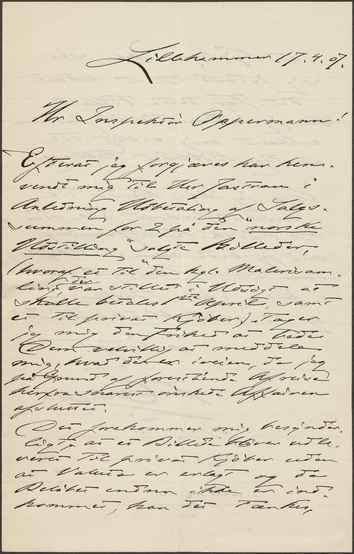 Lillehammer 17.4.07.
Hr. Inspektör Oppermann!
Efterat jeg forgjæves har hen-
vendt mig til Hr Jastrau i
Anledning Udbetaling af Salgs-
summen for 2 på den "norske
Udstilling" solgte Billeder,
(hvoraf et til den kgl. Malerisam-
ling var stillet i Udsigt at
skulle betales i April samt
et til privat Kjöber) tager
jeg mig den Frihed at bede
Dem velvilligst meddele
mig, hvad der er iveien, da jeg
på Grund af forestående Afreise
herfra snarest önsker Affairen
afsluttet.
Det forekommer mig besynder-
ligt, at et Billede bliver udle-
veret til privat Kjöber uden
at Valuta er erlagt og da
Belöbet endnu ikke er ind-
kommet, kan det tænkes,